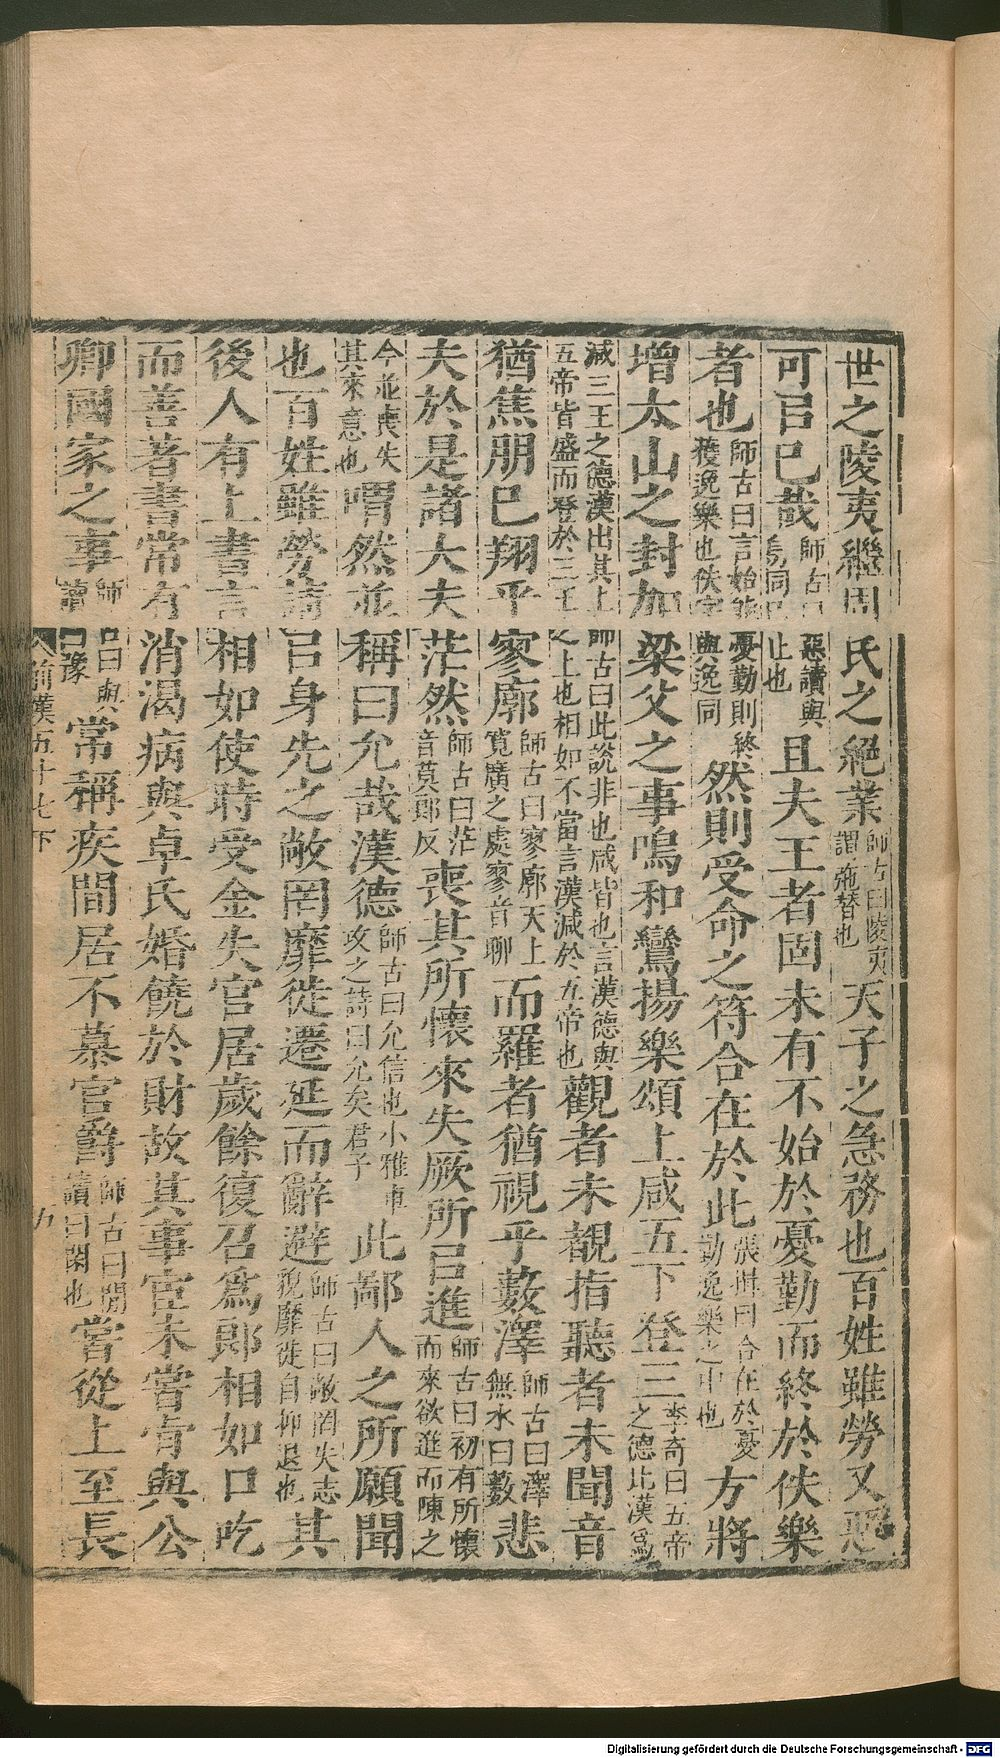 世之陵夷繼周氏之絕業師古曰陵夷謂弛替也天子之急務也百姓雖勞又惡
可㠯已哉師古曰惡讀與烏同已止也且夫王者固未有不始於憂勤而終於佚樂
者也師古曰言始能憂勤則終獲逸樂也佚字與逸同然則受命之符合在於此張揖曰合在於憂勤逸樂之中也方將
增太山之封加梁父之事鳴和鸞揚樂頌上咸五下登三李奇曰五帝之德比漢爲
減三王之德漢出其上師古曰此說非也咸皆也言漢德與五帝皆盛而登於三王之上也相如不當言漢減於五帝也觀者未覩指聽者未聞音
猶焦朋已翔乎寥廓師古曰寥廓天上寬廣之處寥音聊而羅者猶視乎藪澤師古曰澤無水曰藪悲
夫於是諸大夫茫然師古曰茫音莫郎反喪其所懷來失厥所㠯進師古曰初有所懷而來欲進而陳之
今並喪失其來意也喟然並稱曰允哉漢德師古曰允信也小雅車攻之詩曰允矣君子此鄙人之所願聞
也百姓雖勞請㠯身先之敞罔靡徙遷延而辭避師古曰敞罔失志貌靡徙自抑退也其
後人有上書言相如使時受金失官居歲餘復召爲郎相如口吃
而善著書常有消渴病與卓氏婚饒於財故其事宦未嘗肯與公
卿國家之事師古曰與讀曰豫常稱疾閒居不慕官爵師古曰閒讀曰閑也嘗從上至長
前漢五十七下
九
Digitalisierung gefördert durch die Deutsche Forschungsgemeinschaft - DFG